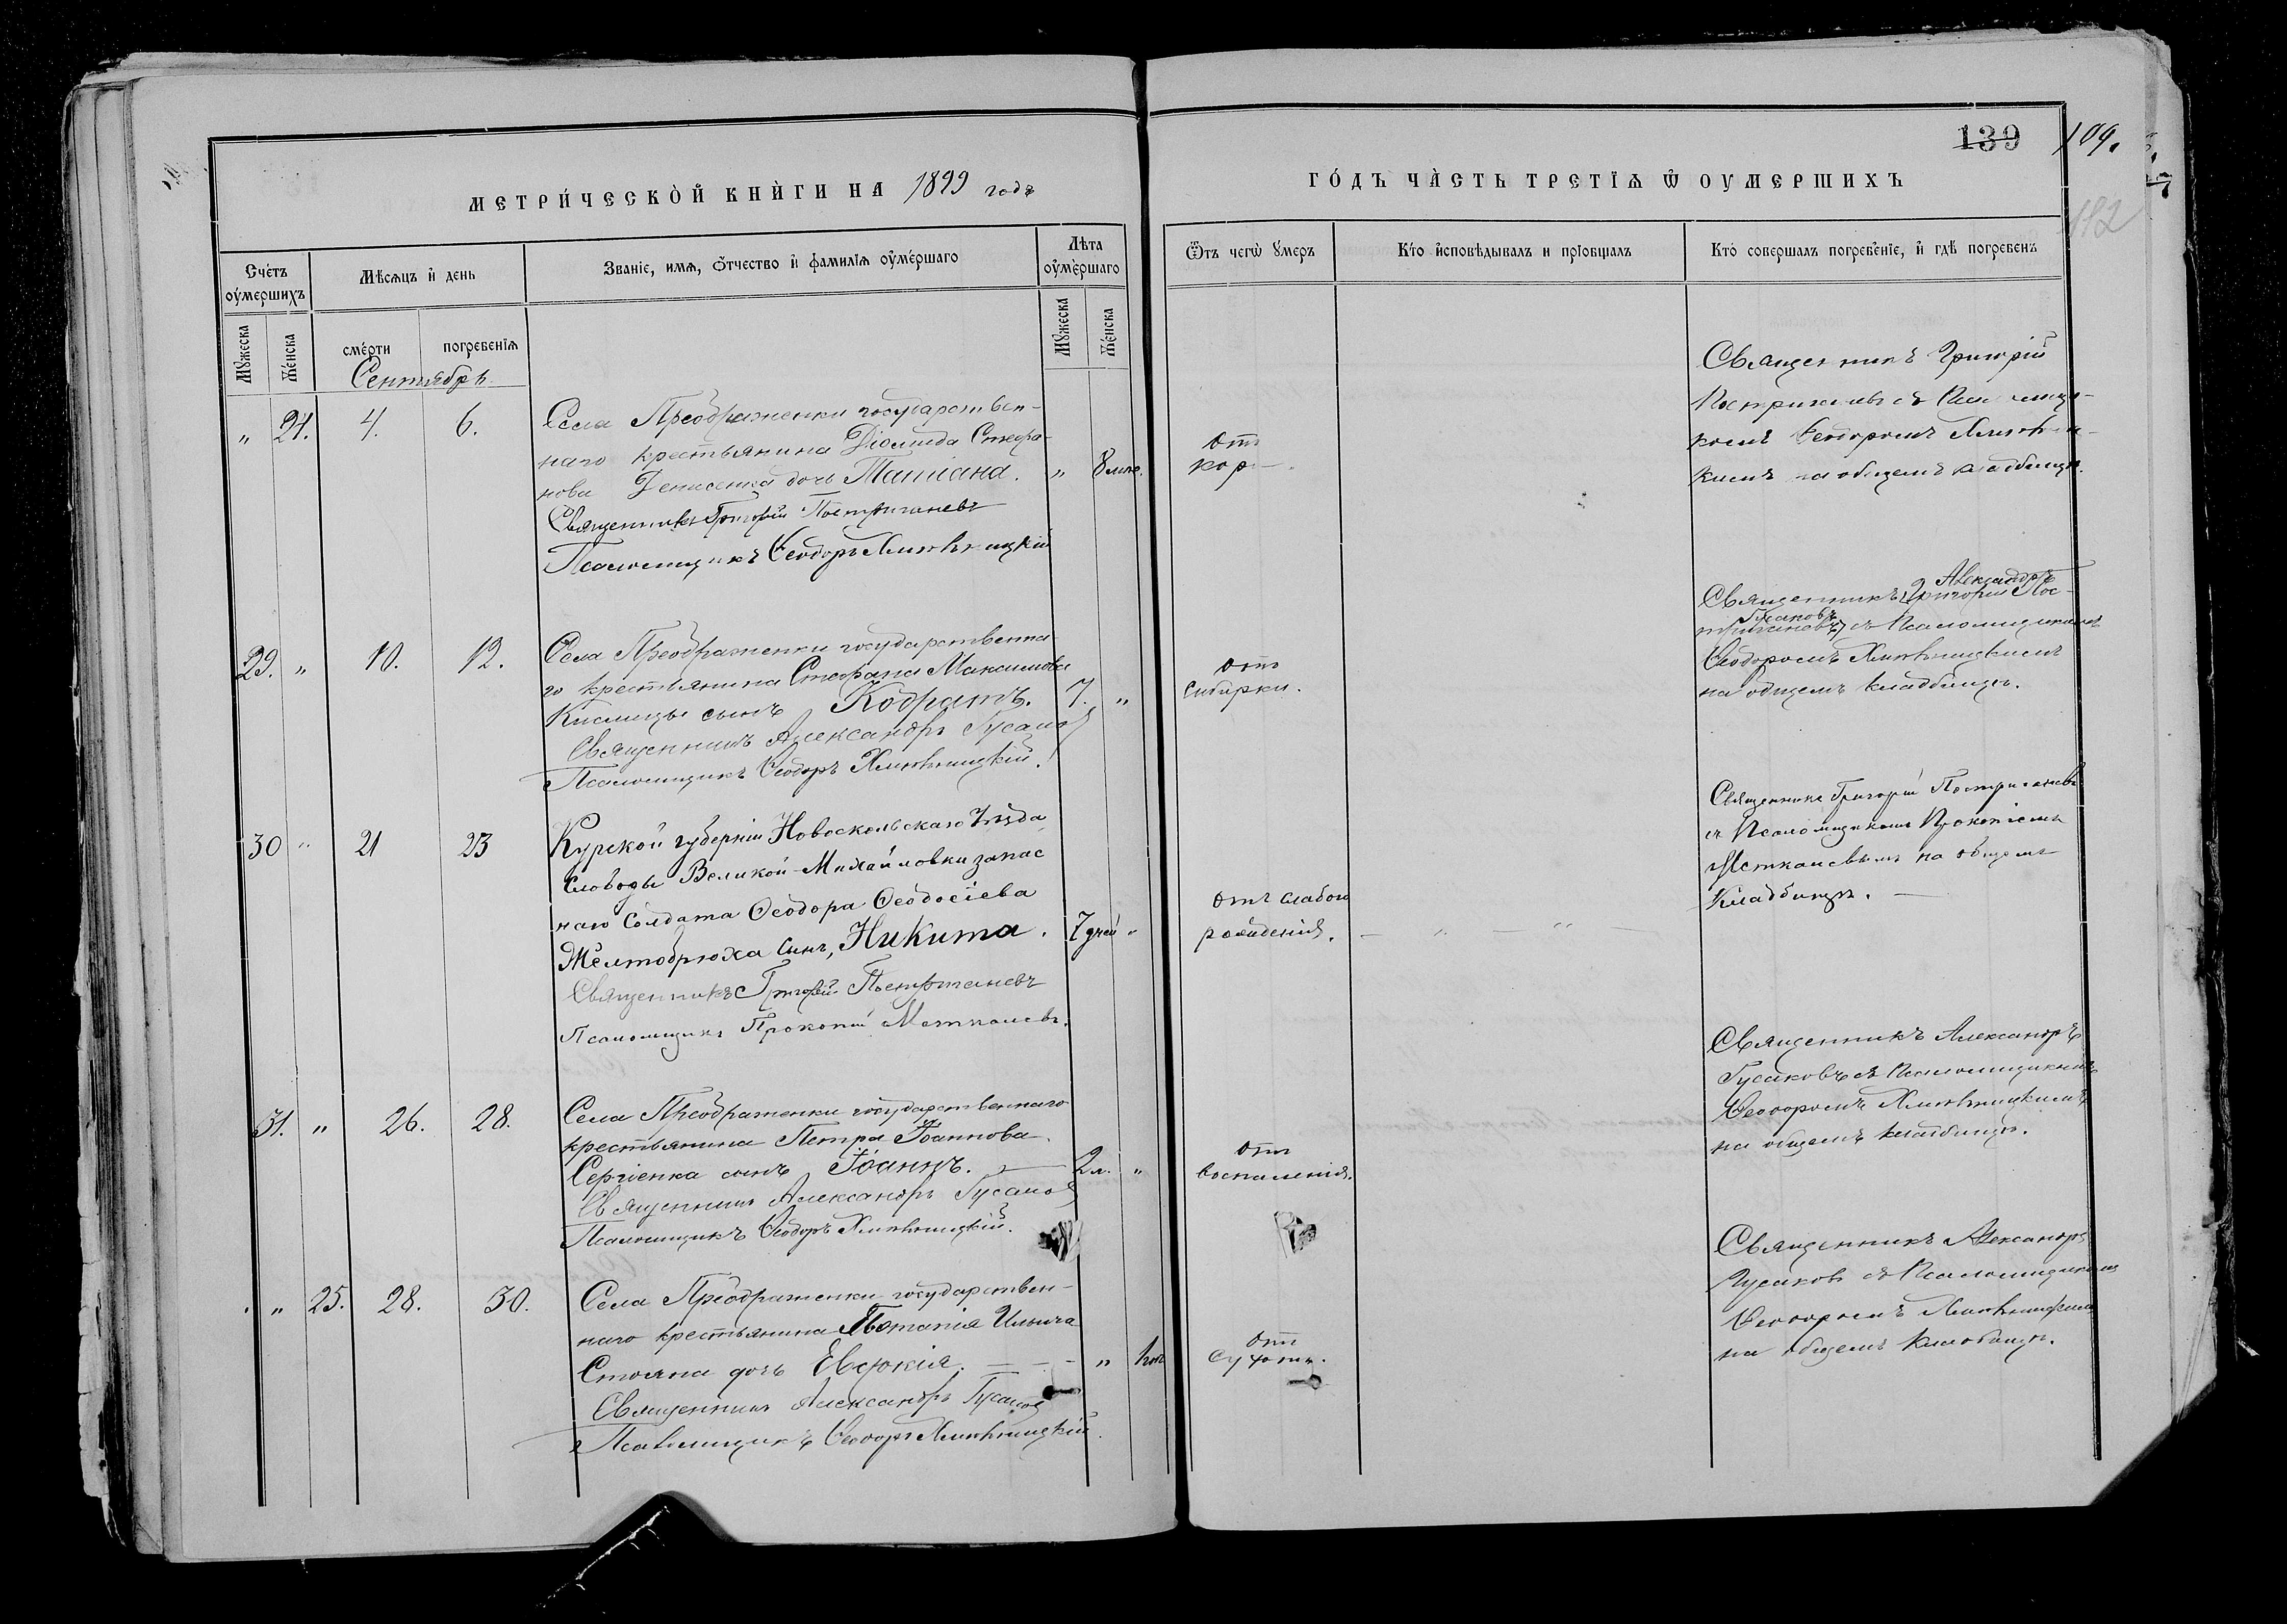 139
109.
182
МЕТРИ́ЧЕСКО̀Й КНЍГИ НА 1899 годъ
ГО́ДЪ ЧА̀СТЬ ТРЕТІѦ Ѿ ОУМЕРШИХЪ
Счетъ оумершихъ
Мѣсѧцъ и день
Званіе, имѧ, отчество и фамиліѧ оумершаго
Лѣта оумершаго
Ѿтъ чегѡ умеръ
Кто исповѣдывалъ и пріобщалъ
Кто совершалъ погребеніе, и гдѣ погребенъ
Мужеска
Женска
смерти
погребеніѧ
Мужеска
Женска
Сентябрь
„ 24. 4. 6.
Села Преображенки государствен-
наго крестьянина Діомида Стефа-
нова Денисенка дочь Татіана. „ 8 мѣс.
Священникъ Григорій Постригачевъ
Псаломщикъ Ѳеодоръ Хмѣльницкій
отъ
кор
Священникъ Григорій
Постригачевъ съ Псаломщи-
комъ Ѳеодоромъ Хмѣльниц-
кимъ на общемъ кладбищѣ.
29. „ 10. 12.
Села Преображенки государственна-
го крестьянина Стефана Максимова
Кислицы сынъ Кодратъ. 7. „
Священникъ Александръ Гусаковъ
Псаломщикъ Ѳеодоръ Хмѣльницкій.
отъ
Сибирки.
Александръ
Священникъ Григорій Пос-
Гусаковъ
тригачевъ съ Псаломщикомъ
Ѳеодоромъ Хмѣльницкимъ
на общемъ кладбищѣ.
30 „ 21 23
Курской губерніи Новоскольскаго Уѣзда
Слободы Великой-Михайловки запас
наго солдата Ѳеодора Ѳеодосіева
Желтобрюха сынъ, Никита. 7 дней „
Священникъ Григорій Постригачевъ
Псаломщикъ Прокопій Меткалевъ.
отъ слабого
рожденія. — „ — „ —
Священникъ Григорій Постригачевъ
съ Псаломщикомъ Прокопіемъ
Меткалевымъ на общемъ
Кладбищѣ. —
31. „ 26. 28.
Села Преображенки государственнаго
крестьянина Петра Іоаннова
Сергіенка сынъ Іоаннъ. 2 м. „
Священникъ Александръ Гусаковъ
Псаломщикъ Ѳеодоръ Хмѣльницкій.
отъ
воспаленія.
Священникъ Александръ
Гусаковъ съ Псаломщикомъ
Ѳеодоромъ Хмѣльницкимъ
на общемъ кладбищѣ.
„ 25. 28. 30.
Села Преображенки государствен-
наго крестьянина Потапія Ильича
Стояна дочь Евфокія. — „
Священникъ Александръ Гусаковъ
Псаломщикъ Ѳеодоръ Хмѣльницкій.
отъ
Сухоты.
Священникъ Александръ
Гусаковъ съ Псаломщикомъ
Ѳеодоромъ Хмѣльницкимъ
на общемъ кладбищѣ.